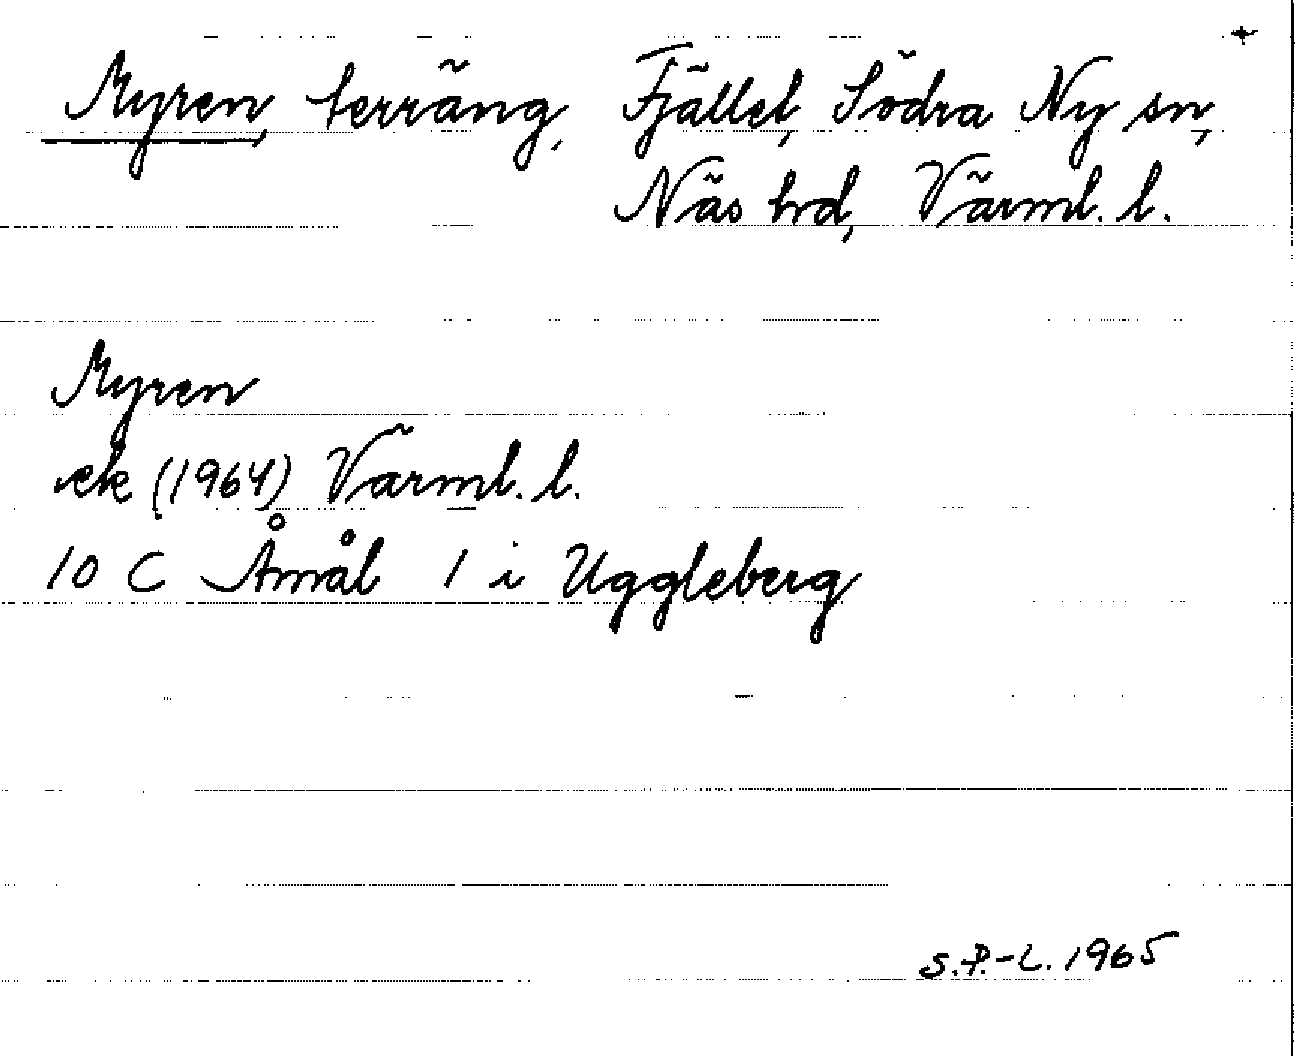 +
Myren, terräng, Fjället, Södra Ny sn,
Näs hd, Värml. l.
Myren
ek (1964) Värml. l.
10 C Åmål 1 i Uggleberg
S.P.-L. 1965